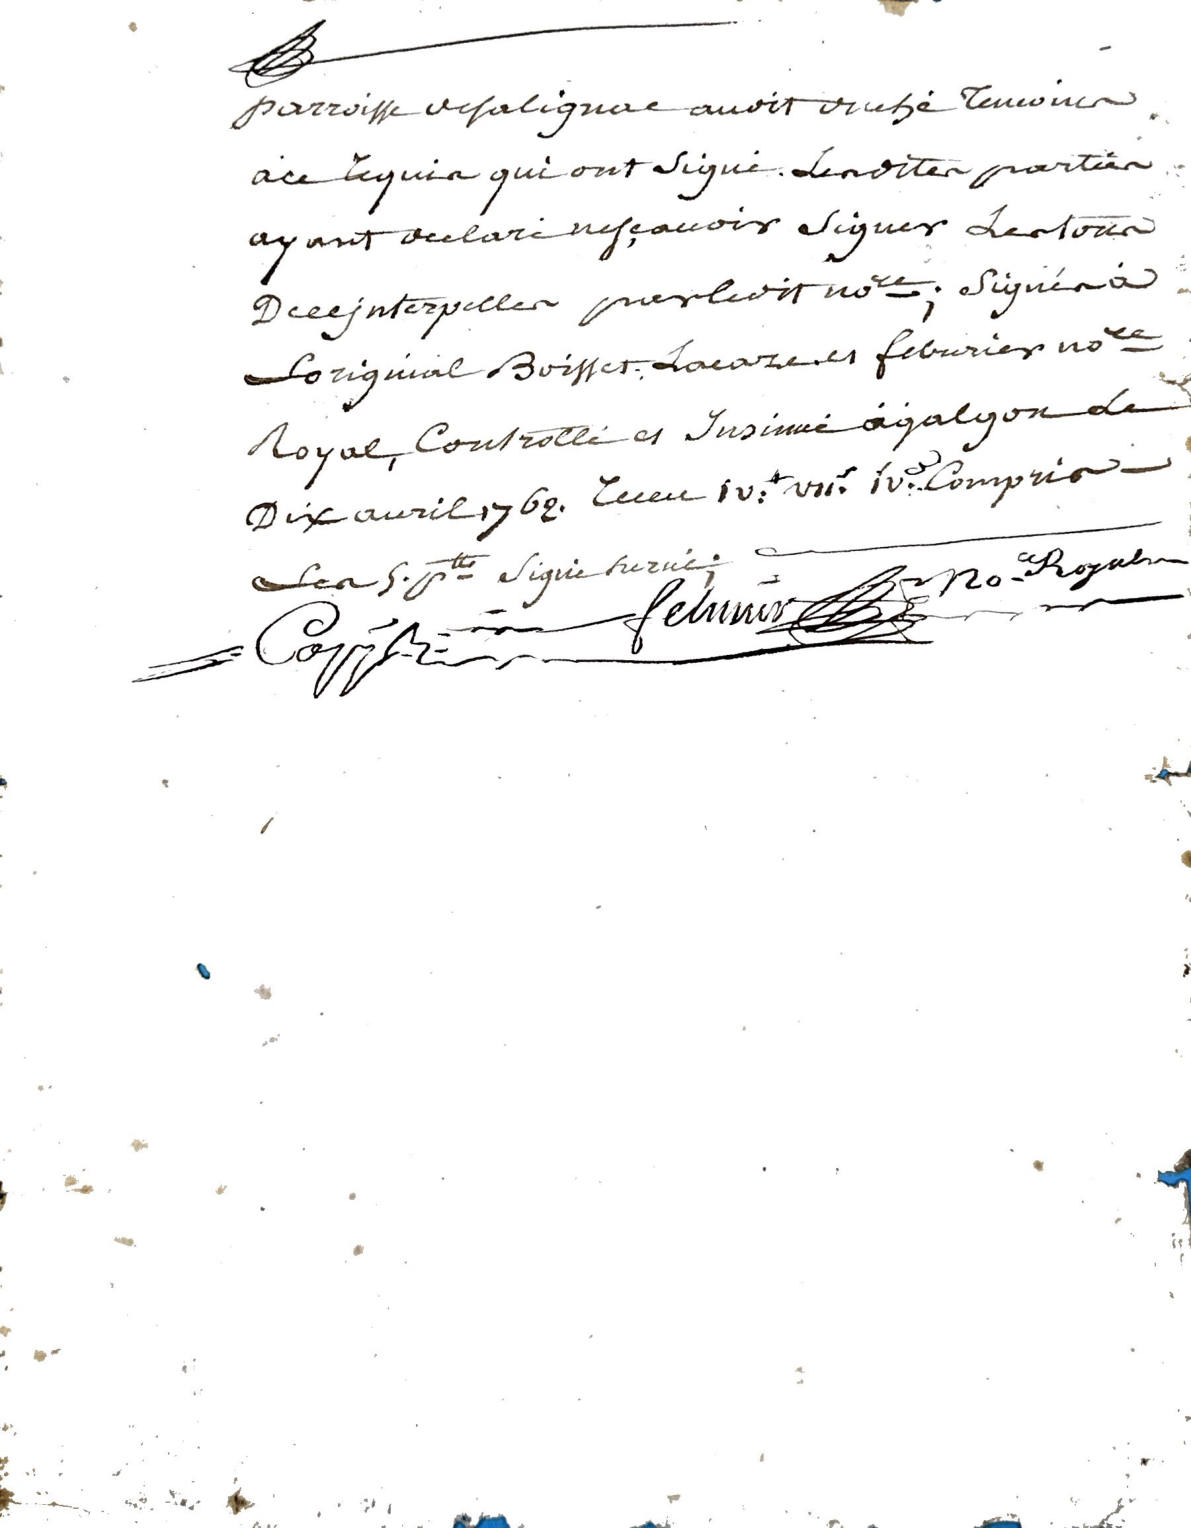 parroisse desalignac audit duché temoins
ace requis qui ont signé. Lesdites parties
ayant declaré nesçavoir signer deetout
Dece jnterpellés parledit no.re; signés à
Loriginal Boisset. Lacaze et februrier no.re
Royal, Controllé et Insinué àgalgon le
Dix avril 1762. Receu iv.# vii.s iv.d Compris
Les s. p.
Coppie februrier no.re Royal